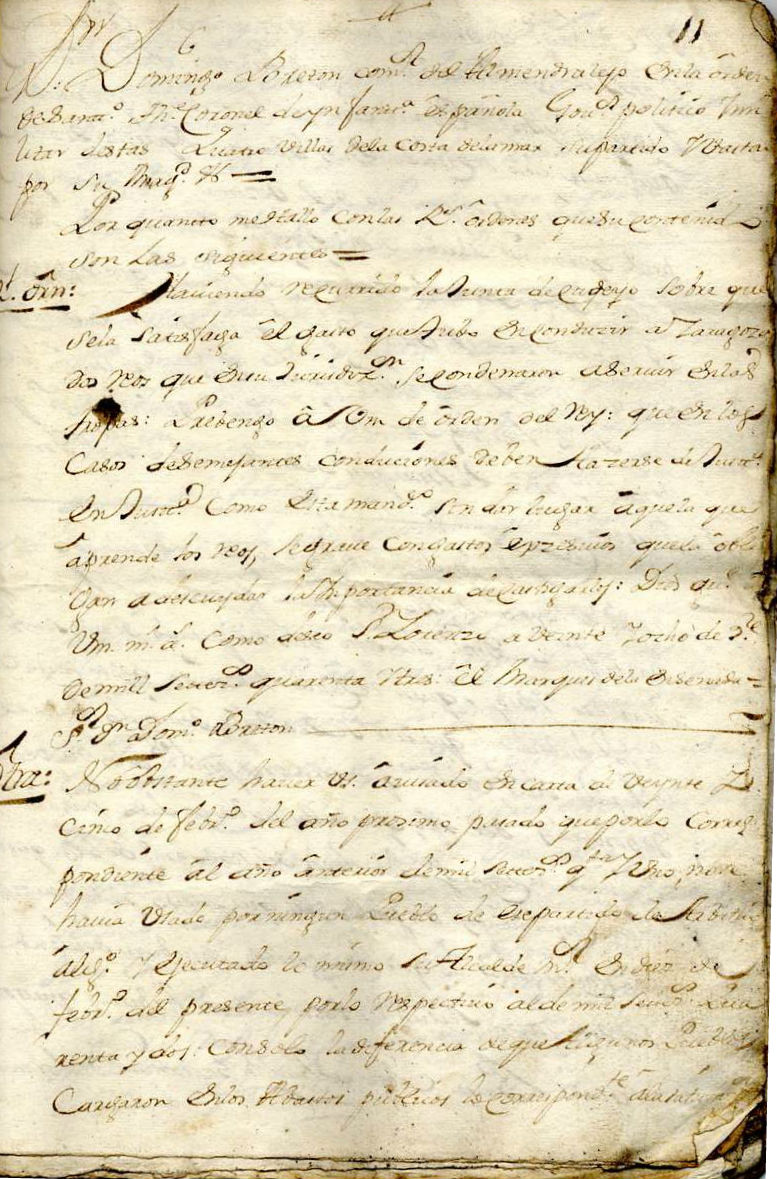 11
Dn. Domingo Breton Comr. del Almendralejo en la orden
de Santo. Thte. Coronel de ynfanta. española Govr. politico Y mi
litar destas Quatro Villas dela Costa dela mar su partido Y Vasta
por Su Magd. &
Por quanto me hallo con las Rs. ordenes que su contenido
son las siguientes
Rl. orn:
Haviendo recurrido la Junta de sobre que
sela satisfaga el gasto que tubo en conduzir a Zaragoza
dos reos que en su Jurisdizn. se condenaron a servir en las
tropas: Prebengo a Vm. de orden del Rey: que en los
Casos de semejantes conduciones deben hazerse de Justa.
en Justa. Como esta mando. sin dar lugar a que la que
aprende los reos, se grave con gastos que la obli
gan a descuydar la Ymportancia de castigarlos: Dios gue.
Vm. ms. as. Como deseo Sn. Lorenzo a veinte Y ocho de
de mill settezs. quarenta Y tres: el Marques dela Ensenada
Sr. Dn. Domo. Breton
Otra:
No obstante haver Vs. avisado en carta de Veynte Y
cinco de febro. del año proximo pasado que por lo Corres
pondiente al año anterior de mil settezs. qta. Y uno, no se
havia Usado por ningun Pueblo de ese partido de Arbitrio
algo. Y ejecutado lo mismo su Alcalde mr. en diez de
febro. del presente, por lo respectivo al de mil setezs. Qua
renta y dos: con sola la diferencia de que algunos Pueblos
Cargaron en los Abastos publicos lo correspondte. ala